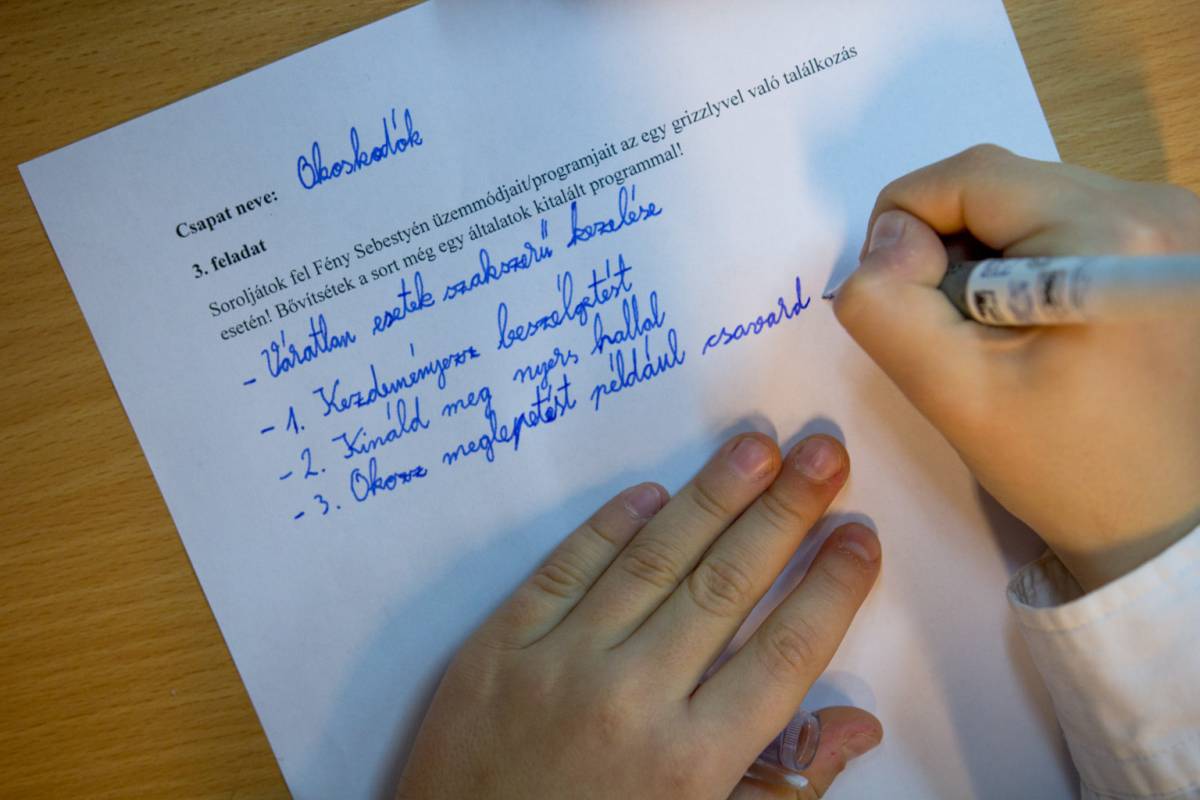 Csapat neve: Okoskodók
3. feladat
Soroljátok fel Fény Sebestyén üzemmódjait/programjait az egy grizzlyvel való találkozás
esetén! Bővítsétek a sort még egy általatok kitalált programmal!
- Váratlan esetek szakszerű kezelése
- 1. Kezdeményezz beszélgetést
- 2. Kináld meg nyers hallal
- 3. Okozz meglepetést például csavard